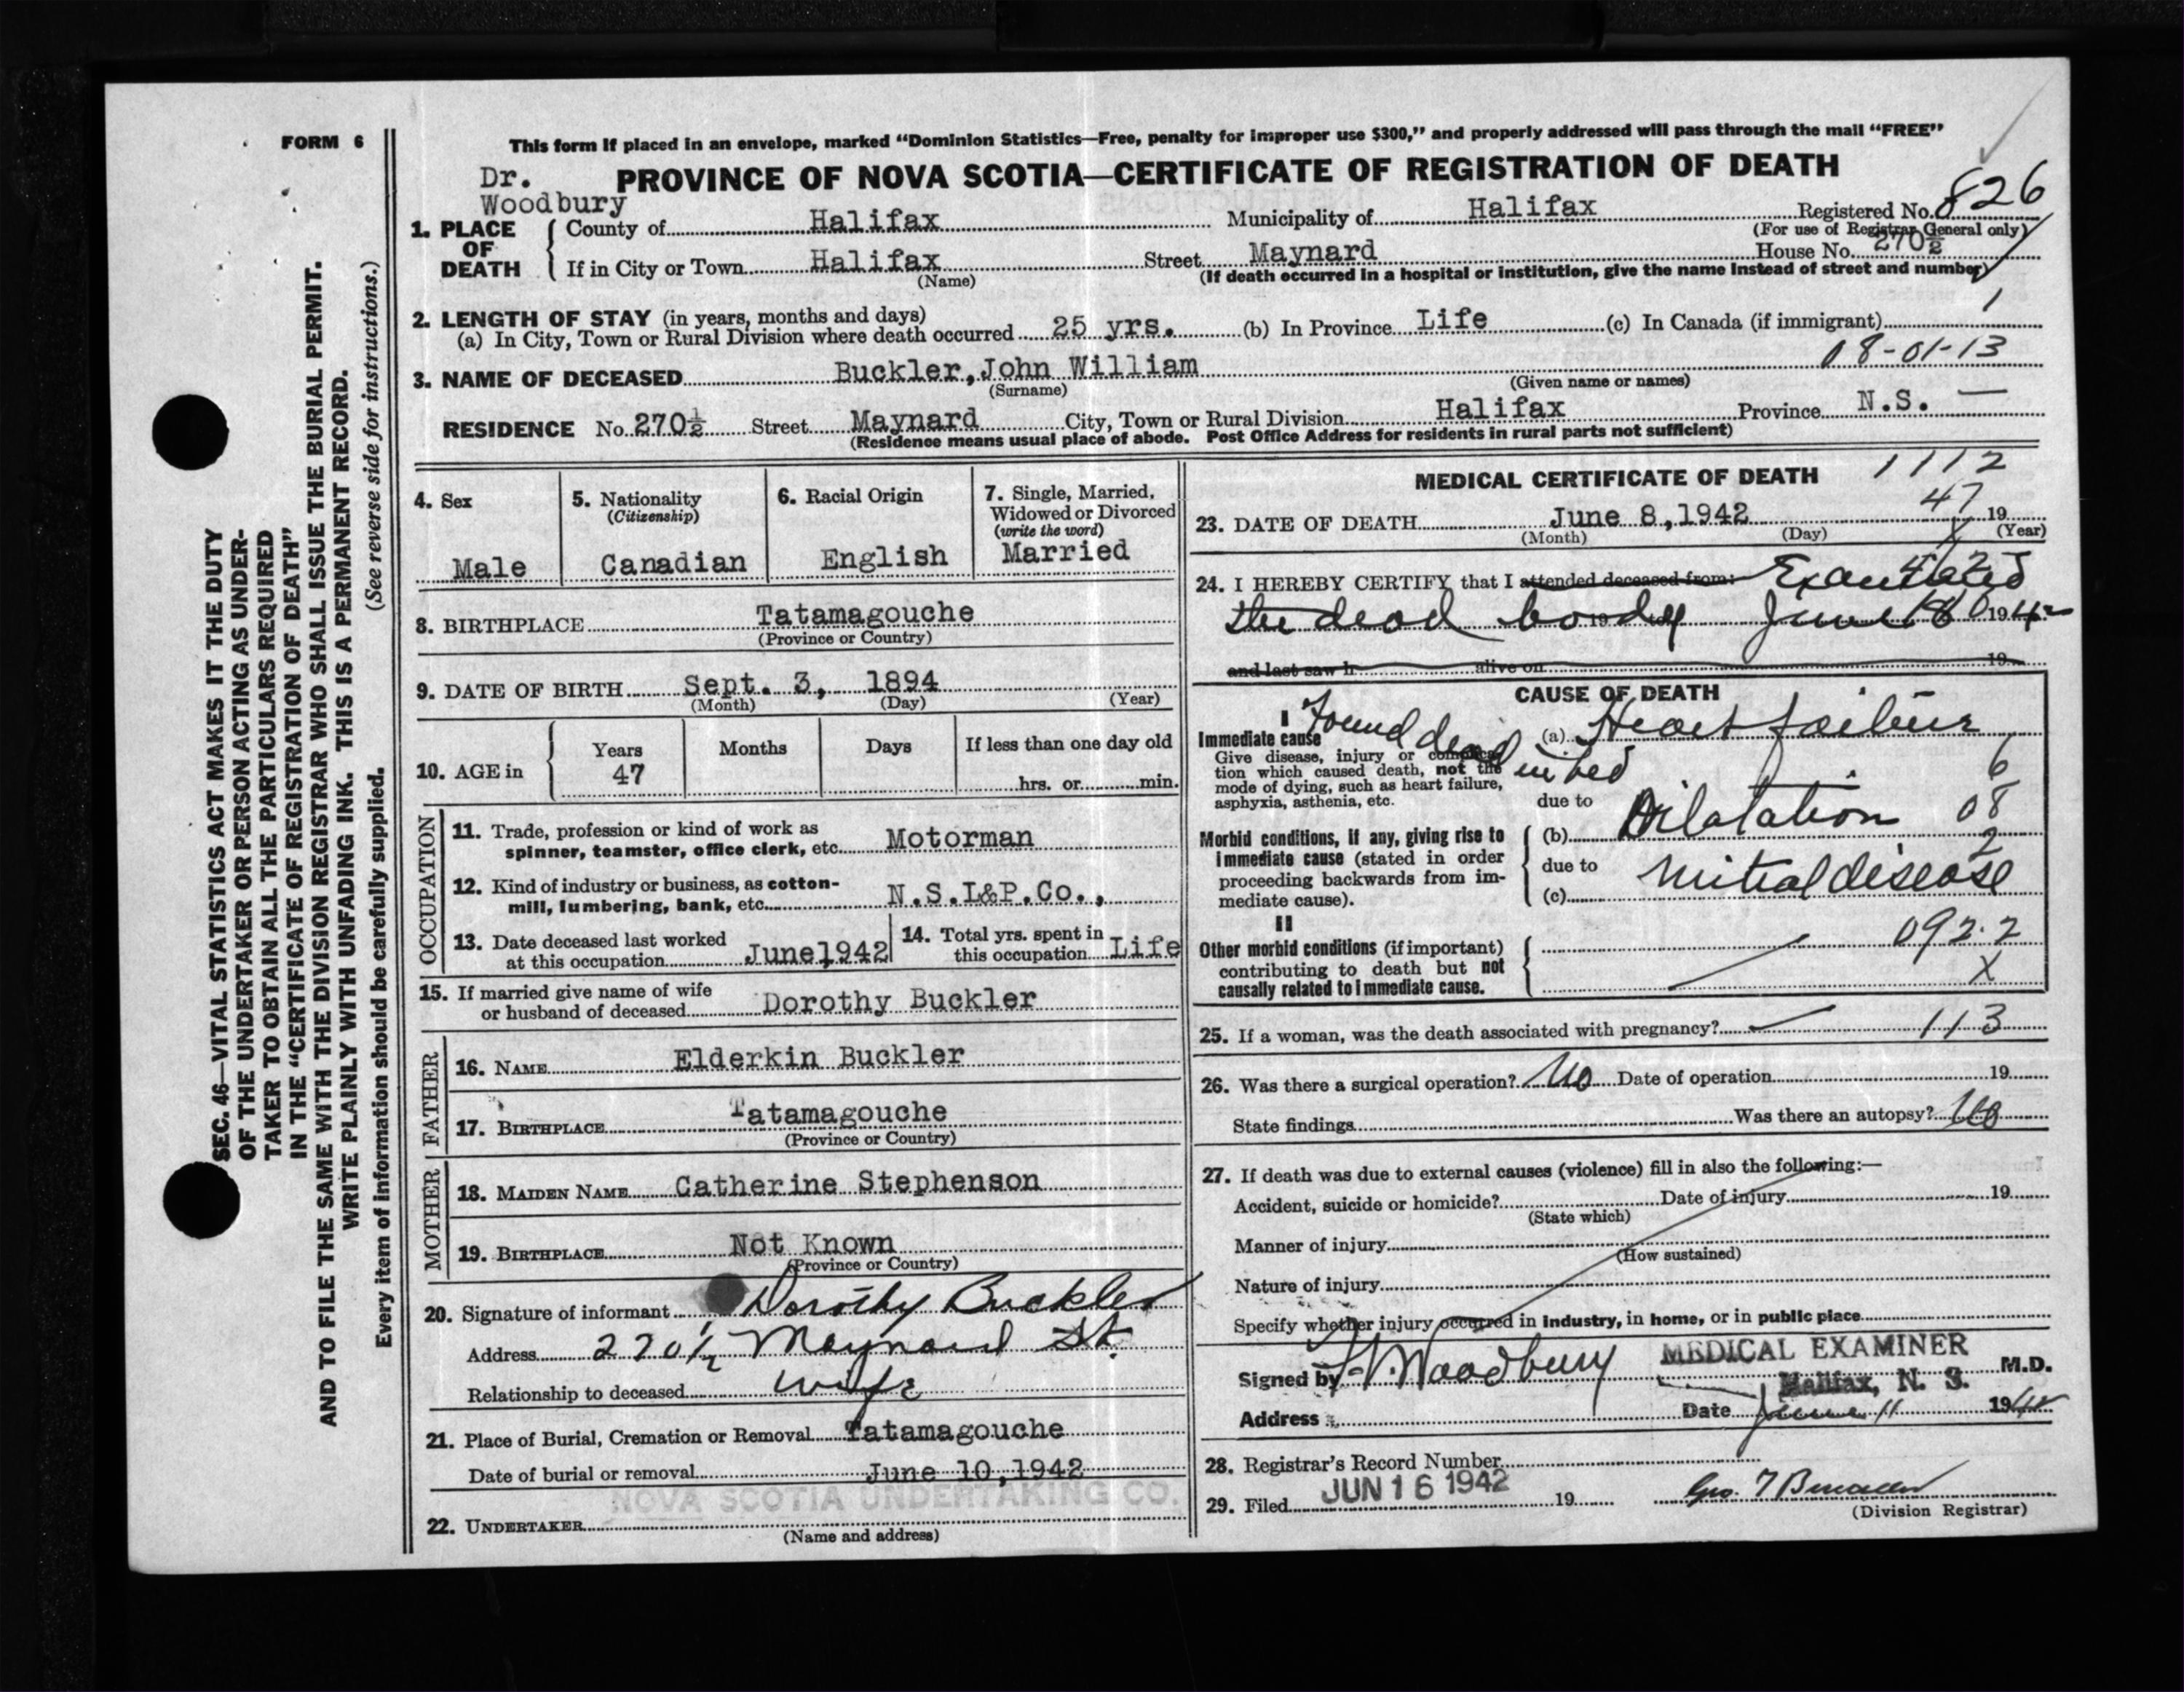 FORM 6
This form if placed in an envelope, marked “Dominion Statistics—Free, penalty for improper use $300,” and properly addressed will pass through the mail “FREE”
Dr.
Woodbury
PROVINCE OF NOVA SCOTIA—CERTIFICATE OF REGISTRATION OF DEATH
1. PLACE OF DEATH
County of Halifax Municipality of Halifax Registered No. 826
(For use of Registrar General only)
If in City or Town Halifax Street Maynard House No. 270½
(Name) (If death occurred in a hospital or institution, give the name instead of street and number)
2. LENGTH OF STAY (in years, months and days) 1
(a) In City, Town or Rural Division where death occurred 25 yrs. (b) In Province Life (c) In Canada (if immigrant)
08-01-13
3. NAME OF DECEASED Buckler, John William
(Surname) (Given name or names)
RESIDENCE No. 270½ Street Maynard City, Town or Rural Division Halifax Province N.S. —
(Residence means usual place of abode. Post Office Address for residents in rural parts not sufficient)
4. Sex
Male
5. Nationality
(Citizenship)
Canadian
6. Racial Origin
English
7. Single, Married,
Widowed or Divorced
(write the word)
Married
8. BIRTHPLACE Tatamagouche
(Province or Country)
9. DATE OF BIRTH Sept. 3, 1894
(Month) (Day) (Year)
10. AGE in
Years Months Days If less than one day old
47 hrs. or min.
OCCUPATION
11. Trade, profession or kind of work as
spinner, teamster, office clerk, etc. Motorman
12. Kind of industry or business, as cotton-
mill, lumbering, bank, etc. N.S.L&P.Co.,
13. Date deceased last worked
at this occupation June 1942
14. Total yrs. spent in
this occupation Life
15. If married give name of wife
or husband of deceased Dorothy Buckler
FATHER
16. NAME Elderkin Buckler
17. BIRTHPLACE Tatamagouche
(Province or Country)
MOTHER
18. MAIDEN NAME Catherine Stephenson
19. BIRTHPLACE Not Known
(Province or Country)
20. Signature of informant Dorothy Buckler
Address 270½ Maynard St.
Relationship to deceased wife
21. Place of Burial, Cremation or Removal Tatamagouche
Date of burial or removal June 10, 1942
NOVA SCOTIA UNDERTAKING CO.
22. UNDERTAKER
(Name and address)
MEDICAL CERTIFICATE OF DEATH 1112
47
23. DATE OF DEATH June 8, 1942 19
(Month) (Day) (Year)
X
24. I HEREBY CERTIFY that I attended deceased from: Examined
the dead body June 8 1942
and last saw h alive on 19
CAUSE OF DEATH
I
Immediate cause
Found dead in bed
(a) Heart failure
Give disease, injury or complica-
tion which caused death, not the
mode of dying, such as heart failure,
asphyxia, asthenia, etc.
6
due to
08
Morbid conditions, if any, giving rise to
immediate cause (stated in order
proceeding backwards from im-
mediate cause).
(b) Dilatation
2
due to
(c) Mitral disease
II
Other morbid conditions (if important)
contributing to death but not
causally related to immediate cause.
092.2
X
25. If a woman, was the death associated with pregnancy? 113
26. Was there a surgical operation? No Date of operation 19
State findings Was there an autopsy? No
27. If death was due to external causes (violence) fill in also the following:—
Accident, suicide or homicide? Date of injury 19
(State which)
Manner of injury
(How sustained)
Nature of injury
Specify whether injury occurred in industry, in home, or in public place
Signed by Woodbury MEDICAL EXAMINER M.D.
Halifax, N. S.
Address Date June 11 1942
28. Registrar's Record Number
29. Filed JUN 16 1942 19
(Division Registrar)
SEC. 46—VITAL STATISTICS ACT MAKES IT THE DUTY
OF THE UNDERTAKER OR PERSON ACTING AS UNDER-
TAKER TO OBTAIN ALL THE PARTICULARS REQUIRED
IN THE “CERTIFICATE OF REGISTRATION OF DEATH”
AND TO FILE THE SAME WITH THE DIVISION REGISTRAR WHO SHALL ISSUE THE BURIAL PERMIT.
WRITE PLAINLY WITH UNFADING INK. THIS IS A PERMANENT RECORD.
(See reverse side for instructions.)
Every item of information should be carefully supplied.